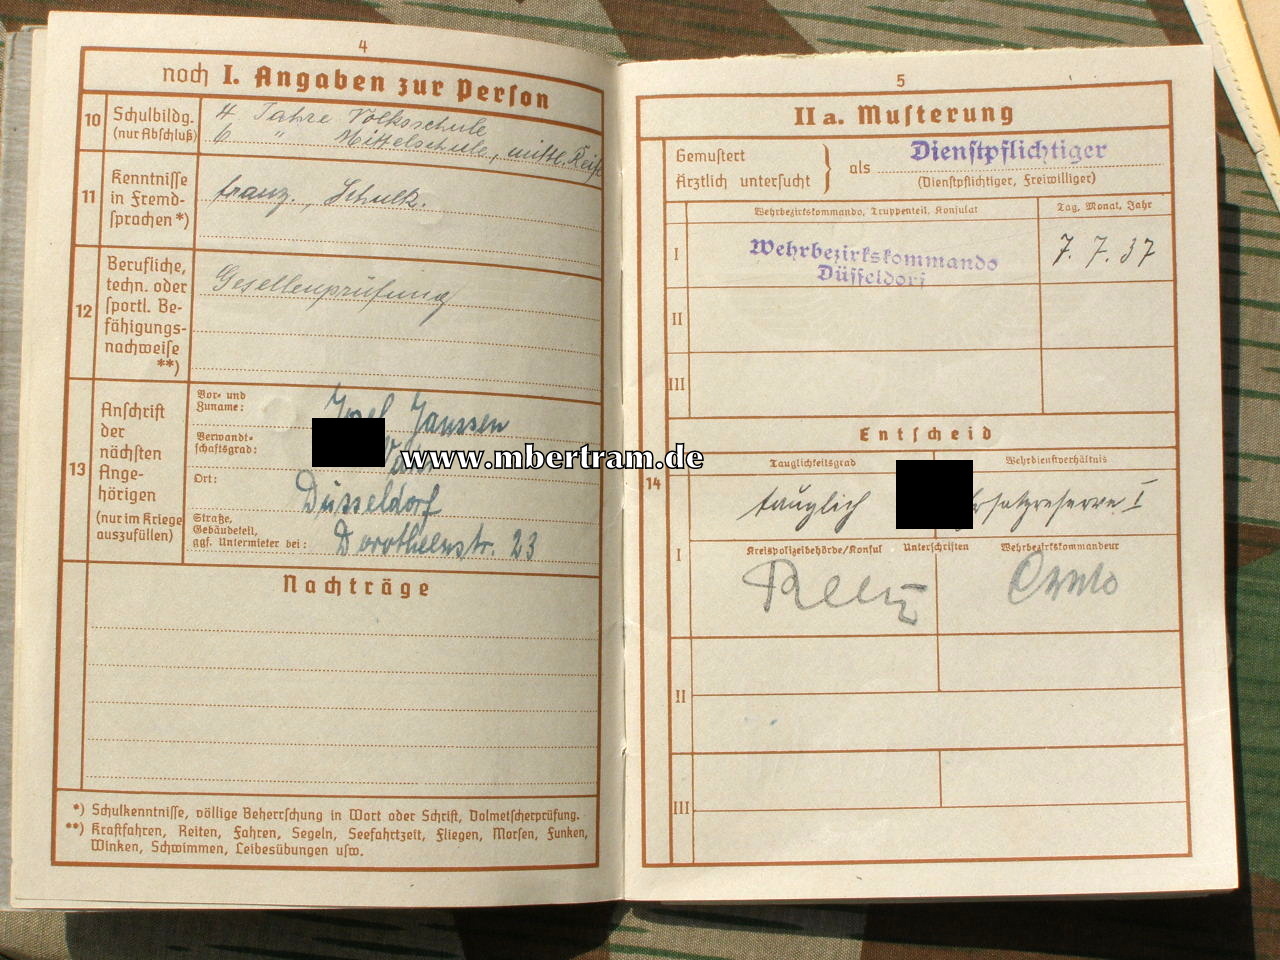 4
noch I. Angaben zur Person
10
Schulbildg.
(nur Abschluß)
4 Jahre Volksschule
6 " Mittelschule, mittl. Reife
11
Kenntnisse
in Fremd-
sprachen *)
franz., Schulk.
12
Berufliche,
techn. oder
sportl. Be-
fähigungs-
nachweise
**)
Gesellenprüfung
13
Anschrift
der
nächsten
Ange-
hörigen
(nur im Kriege
auszufüllen)
Vor- und
Zuname:
Josef Janssen
Verwandt-
schaftsgrad:
Vater
Ort:
Düsseldorf
Straße,
Gebäudeteil,
ggf. Untermieter bei:
Dorotheenstr. 23
Nachträge
*) Schulkenntnisse, völlige Beherrschung in Wort oder Schrift, Dolmetscherprüfung.
**) Kraftfahren, Reiten, Fahren, Segeln, Seefahrtzeit, Fliegen, Morsen, Funken,
Winken, Schwimmen, Leibesübungen usw.
www.mbertram.de
5
II a. Musterung
Gemustert
Ärztlich untersucht
als
Dienstpflichtiger
(Dienstpflichtiger, Freiwilliger)
Wehrbezirkskommando, Truppenteil, Konsulat
Tag, Monat, Jahr
I
Wehrbezirkskommando
Düsseldorf
7. 7. 37
II
III
Entscheid
14
Tauglichkeitsgrad
Wehrdienstverhältnis
tauglich
Ersatzreserve I
I
Kreispolizeibehörde/Konsul
Unterschriften
Wehrbezirkskommandeur
II
III